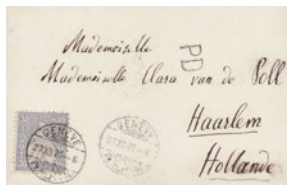 Mademoiselle
PD
Mademoiselle Clara van de Poll
Haarlem
Hollande
GENÈVE
GENÈVE